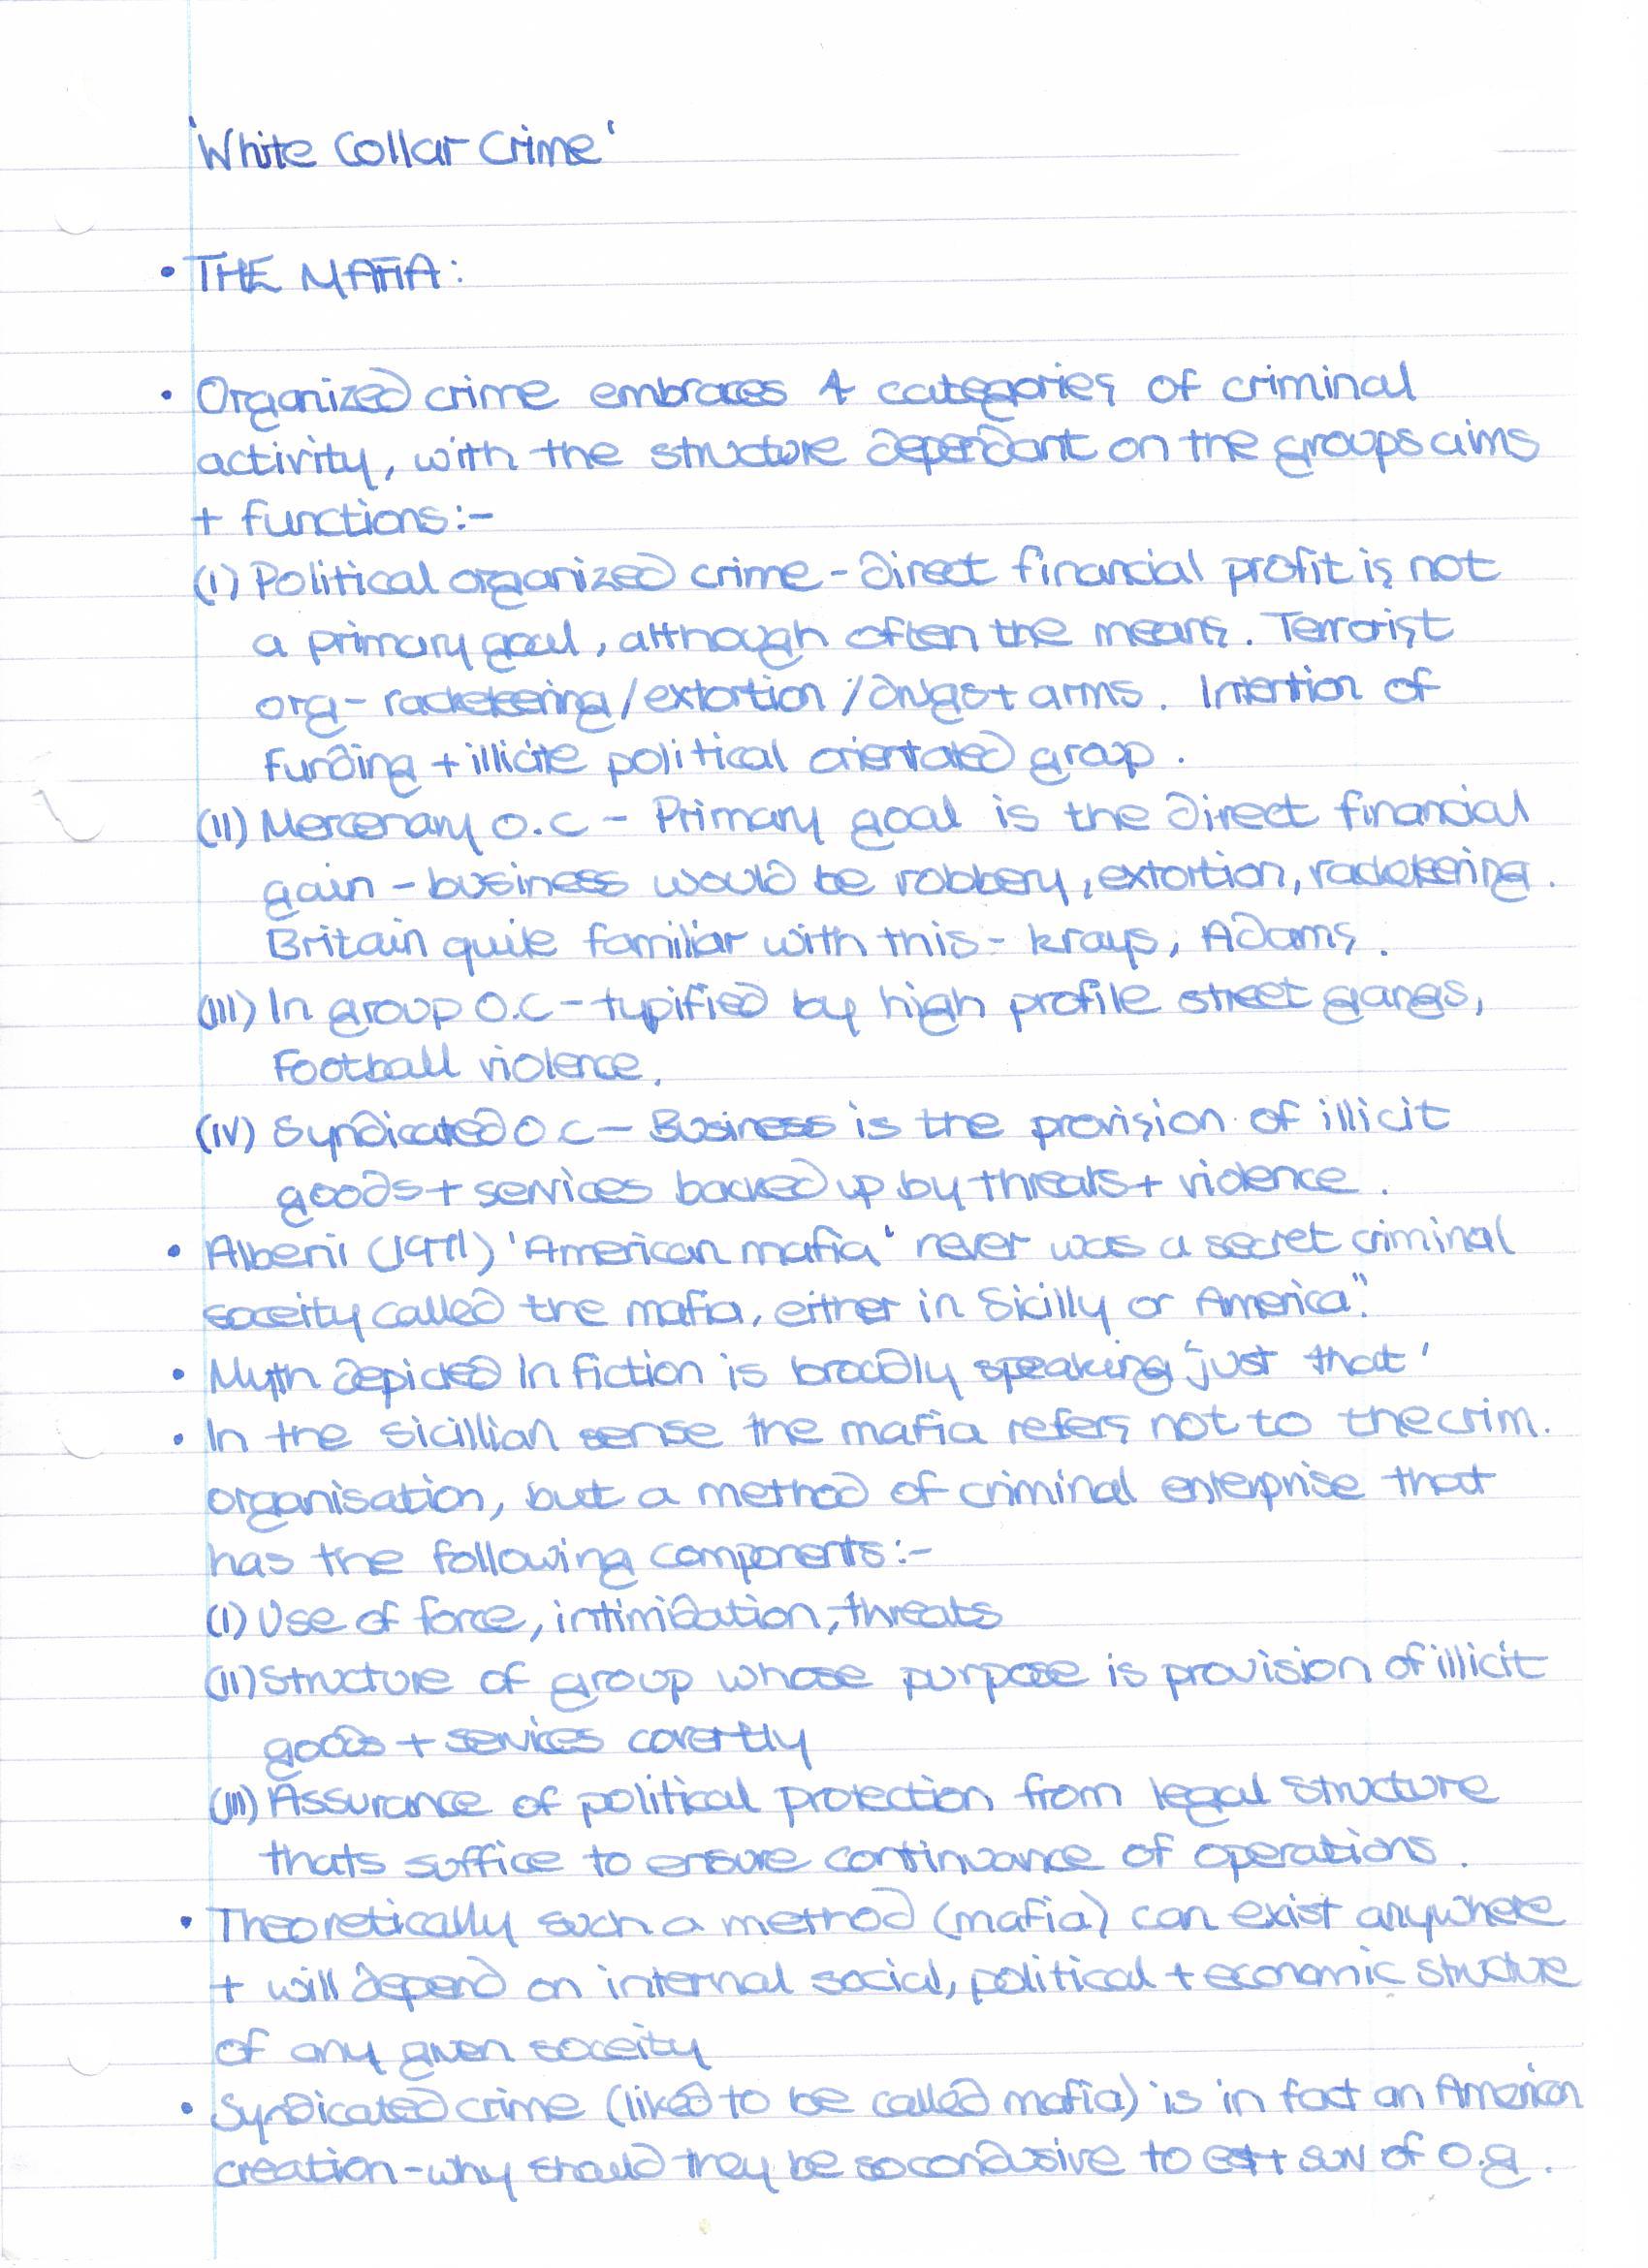 'White Collar Crime'
• THE MAFIA:
• Organized crime embraces 4 categories of criminal
activity, with the structure dependant on the groups aims
+ functions:-
(I) Political organized crime - direct financial profit is not
a primary goal, although often the means. Terrorist
org - racketeering/extortion/drugs + arms. Intention of
funding + illicite political orientated group.
(II) Mercenary O.C - Primary goal is the direct financial
gain - business would be robbery, extortion, racketeering.
Britain quite familiar with this - Krays, Adams.
(III) In group O.C - typified by high profile street gangs,
Football violence.
(IV) Syndicated O C - Business is the provision of illicit
goods + services backed up by threats + violence.
• (1971) 'American mafia' never was a secret criminal
soceity called the mafia, either in Sicilly or America."
• Myth depicted in fiction is broadly speaking 'just that'
• In the sicillian sense the mafia refers not to the crim.
organisation, but a method of criminal enterprise that
has the following components:-
(I) Use of force, intimidation, threats
(II) Structure of group whose purpose is provision of illicit
goods + services covertly
(III) Assurance of political protection from legal structure
thats suffice to ensure continuance of operations.
• Theoretically such a method (mafia) can exist anywhere
+ will depend on internal social, political + economic structure
of any given soceity
• Syndicated crime (liked to be called mafia) is in fact an American
creation - why should they be so conducive to est + surv of O.g.